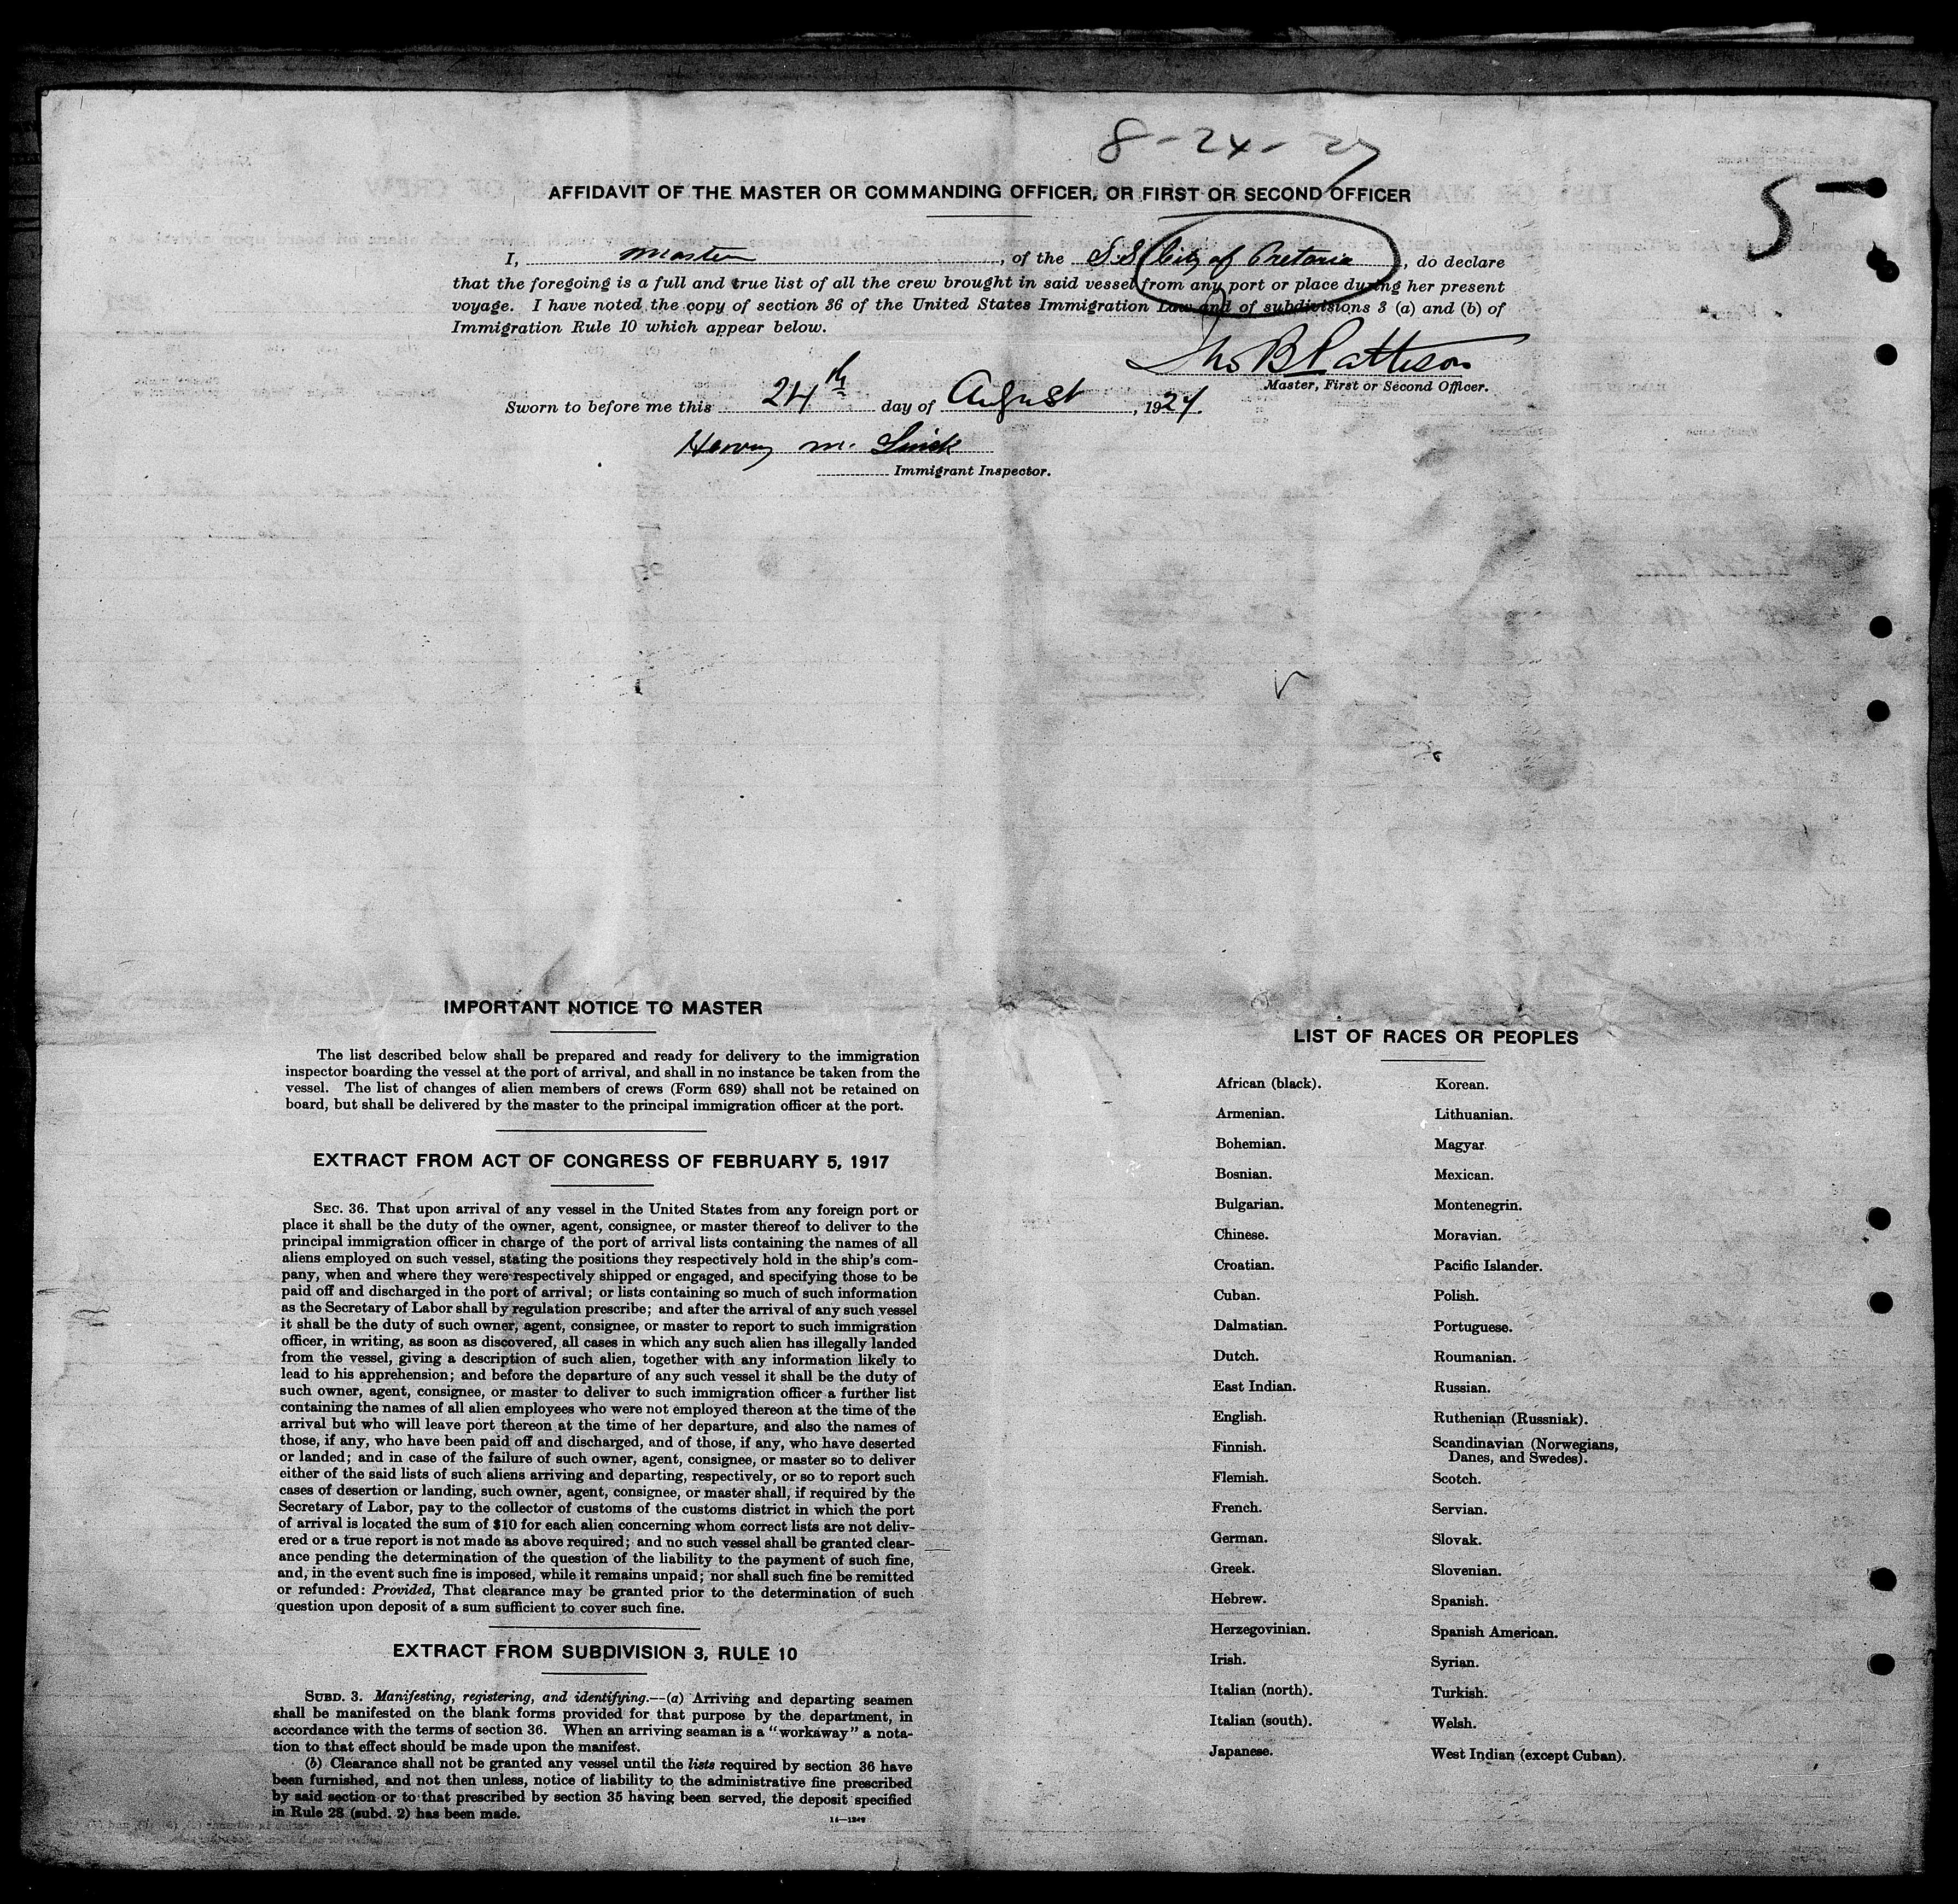 8-24-27
AFFIDAVIT OF THE MASTER OR COMMANDING OFFICER, OR FIRST OR SECOND OFFICER
5
I, Master, of the S.S City of Pretoria, do declare
that the foregoing is a full and true list of all the crew brought in said vessel from any port or place during her present
voyage. I have noted the copy of section 36 of the United States Immigration Law and of subdivisions 3 (a) and (b) of
Immigration Rule 10 which appear below.
Thos B Pattison
Master, First or Second Officer.
Sworn to before me this 24th day of August, 1927.
Henry M.
Immigrant Inspector.
IMPORTANT NOTICE TO MASTER
The list described below shall be prepared and ready for delivery to the immigration
inspector boarding the vessel at the port of arrival, and shall in no instance be taken from the
vessel. The list of changes of alien members of crews (Form 689) shall not be retained on
board, but shall be delivered by the master to the principal immigration officer at the port.
EXTRACT FROM ACT OF CONGRESS OF FEBRUARY 5, 1917
SEC. 36. That upon arrival of any vessel in the United States from any foreign port or
place it shall be the duty of the owner, agent, consignee, or master thereof to deliver to the
principal immigration officer in charge of the port of arrival lists containing the names of all
aliens employed on such vessel, stating the positions they respectively hold in the ship's com-
pany, when and where they were respectively shipped or engaged, and specifying those to be
paid off and discharged in the port of arrival; or lists containing so much of such information
as the Secretary of Labor shall by regulation prescribe; and after the arrival of any such vessel
it shall be the duty of such owner, agent, consignee, or master to report to such immigration
officer, in writing, as soon as discovered, all cases in which any such alien has illegally landed
from the vessel, giving a description of such alien, together with any information likely to
lead to his apprehension; and before the departure of any such vessel it shall be the duty of
such owner, agent, consignee, or master to deliver to such immigration officer a further list
containing the names of all alien employees who were not employed thereon at the time of the
arrival but who will leave port thereon at the time of her departure, and also the names of
those, if any, who have been paid off and discharged, and of those, if any, who have deserted
or landed; and in case of the failure of such owner, agent, consignee, or master so to deliver
either of the said lists of such aliens arriving and departing, respectively, or so to report such
cases of desertion or landing, such owner, agent, consignee, or master shall, if required by the
Secretary of Labor, pay to the collector of customs of the customs district in which the port
of arrival is located the sum of $10 for each alien concerning whom correct lists are not deliv-
ered or a true report is not made as above required; and no such vessel shall be granted clear-
ance pending the determination of the question of the liability to the payment of such fine,
and, in the event such fine is imposed, while it remains unpaid; nor shall such fine be remitted
or refunded: Provided, That clearance may be granted prior to the determination of such
question upon deposit of a sum sufficient to cover such fine.
EXTRACT FROM SUBDIVISION 3, RULE 10
SUBD. 3. Manifesting, registering, and identifying.—(a) Arriving and departing seamen
shall be manifested on the blank forms provided for that purpose by the department, in
accordance with the terms of section 36. When an arriving seaman is a "workaway" a nota-
tion to that effect should be made upon the manifest.
(b) Clearance shall not be granted any vessel until the lists required by section 36 have
been furnished, and not then unless, notice of liability to the administrative fine prescribed
by said section or to that prescribed by section 35 having been served, the deposit specified
in Rule 28 (subd. 2) has been made.
14—1249
LIST OF RACES OR PEOPLES
African (black). Korean.
Armenian. Lithuanian.
Bohemian. Magyar.
Bosnian. Mexican.
Bulgarian. Montenegrin.
Chinese. Moravian.
Croatian. Pacific Islander.
Cuban. Polish.
Dalmatian. Portuguese.
Dutch. Roumanian.
East Indian. Russian.
English. Ruthenian (Russniak).
Finnish. Scandinavian (Norwegians,
Danes, and Swedes).
Flemish. Scotch.
French. Servian.
German. Slovak.
Greek. Slovenian.
Hebrew. Spanish.
Herzegovinian. Spanish American.
Irish. Syrian.
Italian (north). Turkish.
Italian (south). Welsh.
Japanese. West Indian (except Cuban).